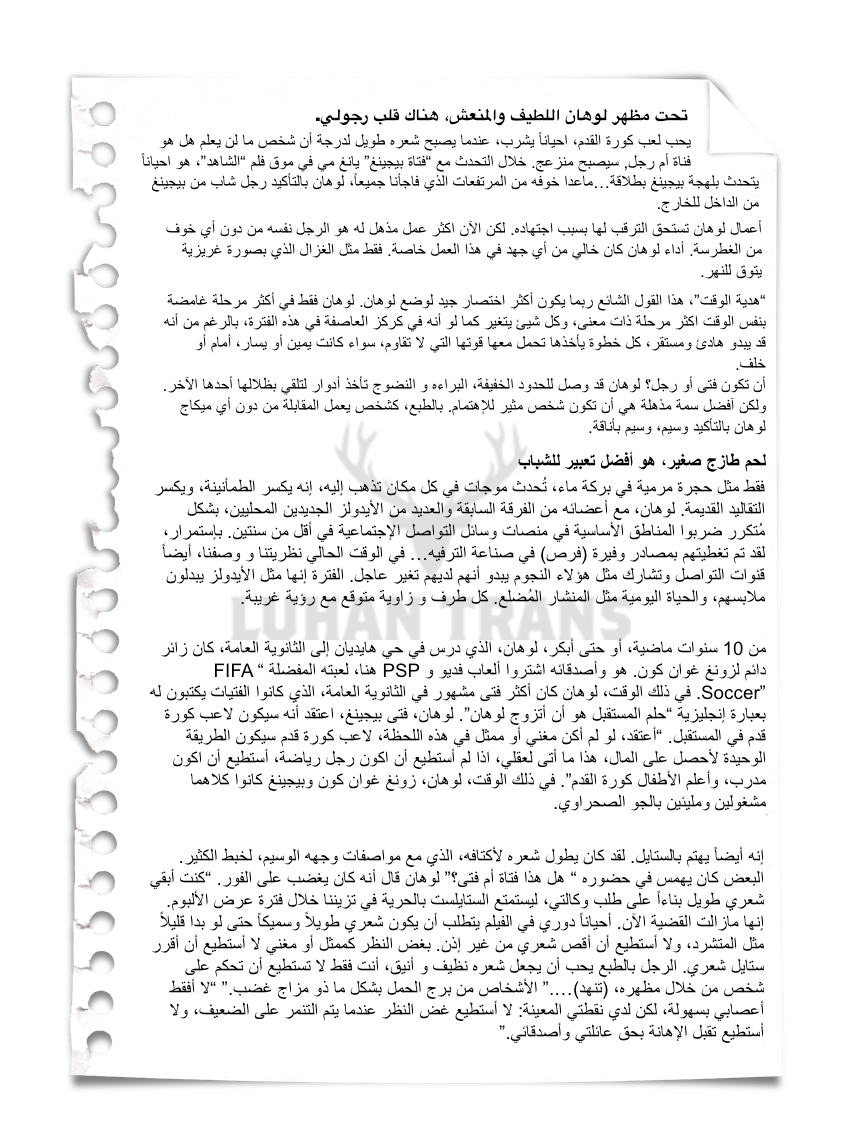 تحت مظهر لوهان اللطيف والمنعش، هناك قلب رجولي.
يحب لعب كورة القدم، احياناً يشرب، عندما يصبح شعره طويل لدرجة أن شخص ما لن يعلم هل هو
فناة أم رجل, سيصبح منزعج. خلال التحدث مع “فتاة بيجينغ” يانغ مي في موق فلم “الشاهد”، هو احياناً
يتحدث بلهجة بيجينغ بطلاقة...ماعدا خوفه من المرتفعات الذي فاجأنا جميعاً، لوهان بالتأكيد رجل شاب من بيجينغ
من الداخل للخارج.
أعمال لوهان تستحق الترقب لها بسبب اجتهاده. لكن الآن اكثر عمل مذهل له هو الرجل نفسه من دون أي خوف
من الغطرسة. أداء لوهان كان خالي من أي جهد في هذا العمل خاصة. فقط مثل الغزال الذي بصورة غريزية
يتوق للنهر.
“هدية الوقت”، هذا القول الشائع ربما يكون أكثر اختصار جيد لوضع لوهان. لوهان فقط في أكثر مرحلة غامضة
بنفس الوقت اكثر مرحلة ذات معنى، وكل شيئ يتغير كما لو أنه في كركز العاصفة في هذه الفترة، بالرغم من أنه
قد يبدو هادئ ومستقر، كل خطوة يأخذها تحمل معها قوتها التي لا تقاوم، سواء كانت يمين أو يسار، أمام أو
خلف.
أن تكون فتى أو رجل؟ لوهان قد وصل للحدود الخفيفة، البراءه و النضوج تأخذ أدوار لتلقي بظلالها أحدها الآخر.
ولكن آفضل سمة مذهلة هي أن تكون شخص مثير للإهتمام. بالطبع، كشخص يعمل المقابلة من دون أي ميكاج
لوهان بالتأكيد وسيم، وسيم بأناقة.
لحم طازج صغير، هو أفضل تعبير للشباب
فقط مثل حجرة مرمية في بركة ماء، تُحدث موجات في كل مكان تذهب إليه، إنه يكسر الطمأنينة، ويكسر
التقاليد القديمة. لوهان، مع أعضائه من الفرقة السابقة والعديد من الأيدولز الجديدين المحليين، بشكل
مُتكرر ضربوا المناطق الأساسية في منصات وسائل التواصل الإجتماعية في أقل من سنتين. بإستمرار،
لقد تم تغطيتهم بمصادر وفيرة (فرص) في صناعة الترفيه... في الوقت الحالي نظريتنا و وصفنا، أيضاً
قنوات التواصل وتشارك مثل هؤلاء النجوم يبدو أنهم لديهم تغير عاجل. الفترة إنها مثل الأيدولز يبدلون
ملابسهم، والحياة اليومية مثل المنشار المُضلع. كل طرف و زاوية متوقع مع رؤية غريبة.
LUHAN TRANS
من 10 سنوات ماضية، أو حتى أبكر، لوهان، الذي درس في حي هايديان إلى الثانوية العامة، كان زائر
دائم لزونغ غوان كون. هو وأصدقائه اشتروا ألعاب فديو و PSP هنا، لعبته المفضلة “ FIFA
Soccer”. في ذلك الوقت، لوهان كان أكثر فتى مشهور في الثانوية العامة، الذي كانوا الفتيات يكتبون له
بعبارة إنجليزية “حلم المستقبل هو أن أتزوج لوهان”. لوهان، فتى بيجينغ، اعتقد أنه سيكون لاعب كورة
قدم في المستقبل. “أعتقد، لو لم أكن مغني أو ممثل في هذه اللحظة، لاعب كورة قدم سيكون الطريقة
الوحيدة لأحصل على المال، هذا ما أتى لعقلي، اذا لم أستطيع أن اكون رجل رياضة، أستطيع أن اكون
مدرب، وأعلم الأطفال كورة القدم”. في ذلك الوقت، لوهان، زونغ غوان كون وبيجينغ كانوا كلاهما
مشغولين ومليئين بالجو الصحراوي.
إنه أيضاً يهتم بالستايل. لقد كان يطول شعره لأكتافه، الذي مع مواصفات وجهه الوسيم، لخبط الكثير.
البعض كان يهمس في حضوره “ هل هذا فتاة أم فتى؟” لوهان قال أنه كان يغضب على الفور. “كنت أبقي
شعري طويل بناءاً على طلب وكالتي، ليستمتع الستايلست بالحرية في تزيننا خلال فترة عرض الألبوم.
إنها مازالت القضية الآن. أحياناً دوري في الفيلم يتطلب أن يكون شعري طويلاً وسميكاً حتى لو بدا قليلاً
مثل المتشرد، ولا أستطيع أن أقص شعري من غير إذن. بغض النظر كممثل أو مغني لا أستطيع أن أقرر
ستايل شعري. الرجل بالطبع يحب أن يجعل شعره نظيف و أنيق، أنت فقط لا تستطيع أن تحكم على
شخص من خلال مظهره، (تنهد)....” الأشخاص من برج الحمل بشكل ما ذو مزاج غضب.” “لا أفقط
أعصابي بسهولة، لكن لدي نقطتي المعينة: لا أستطيع غض النظر عندما يتم التنمر على الضعيف، ولا
أستطيع تقبل الإهانة بحق عائلتي وأصدقائي.”